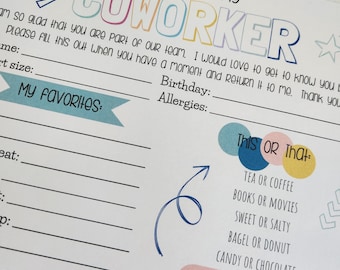 COWORKER
am so glad that you are part of our team. I would love to get to know you b
Please fill this out when you have a moment and return it to me. Thank you
Name:
rt size:
Birthday:
Allergies:
My Favorites:
eat:
t:
p:
This OR That:
TEA OR COFFEE
BOOKS OR MOVIES
SWEET OR SALTY
BAGEL OR DONUT
CANDY OR CHOCOLATE